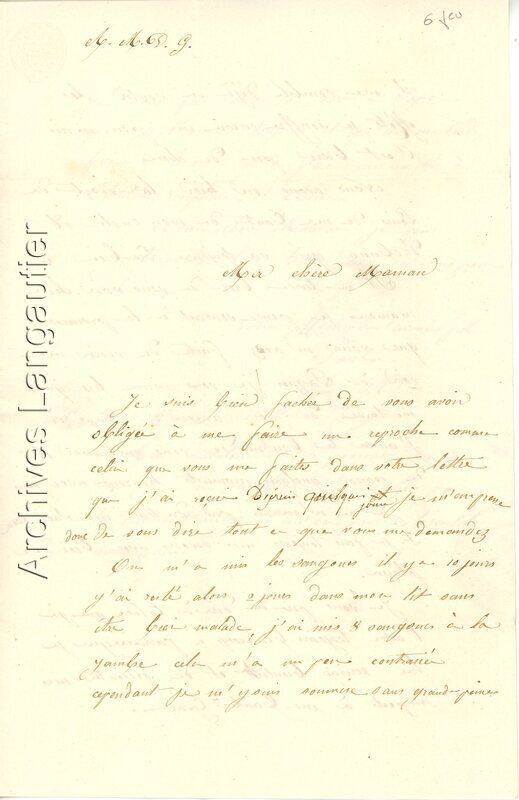 6 fev
A. M. D. G.
Ma chère Maman
Je suis bien fachée de vous avoir
obligée à me faire un reproche comme
celui que vous me faites dans votre lettre
que j'ai reçue Depuis quelques jours je m'empresse
donc de vous dire tout ce que vous me demandez
On m'a mis les sangsues il y a 10 jours
j'ai resté alors 2 jours dans mon lit sans
être bien malade, j'ai mis 8 sangsues à la
jambe cela m'a un peu contrariée
cependant je m'y suis soumise sans grande peine
Archives Langautier